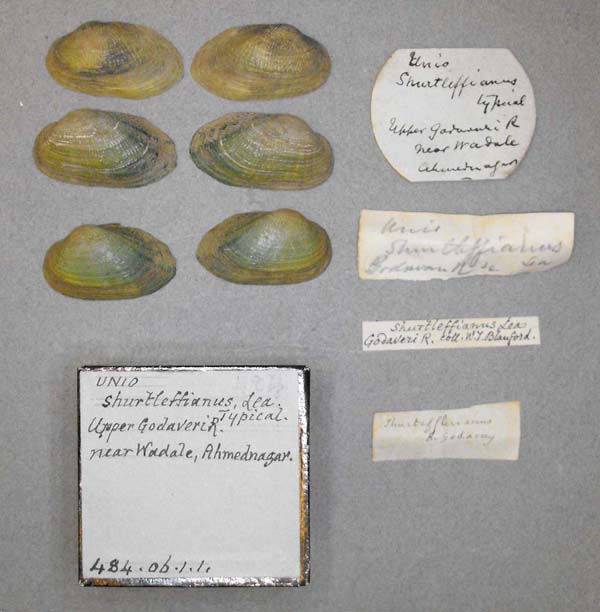 Unio
Shurtleffianus
typical
Upper Godaveri R
near Wadale
Ahmednagar
Unio
Shurtleffianus
Lea
Shurtleffianus Lea
Godaveri R. coll. W.T. Blanford.
Shurtleffianus
R. Godavery
UNIO
Shurtleffianus, Lea.
Typical.
Upper Godaveri R.
near Wadale, Ahmednagar.
484.06.1.1.